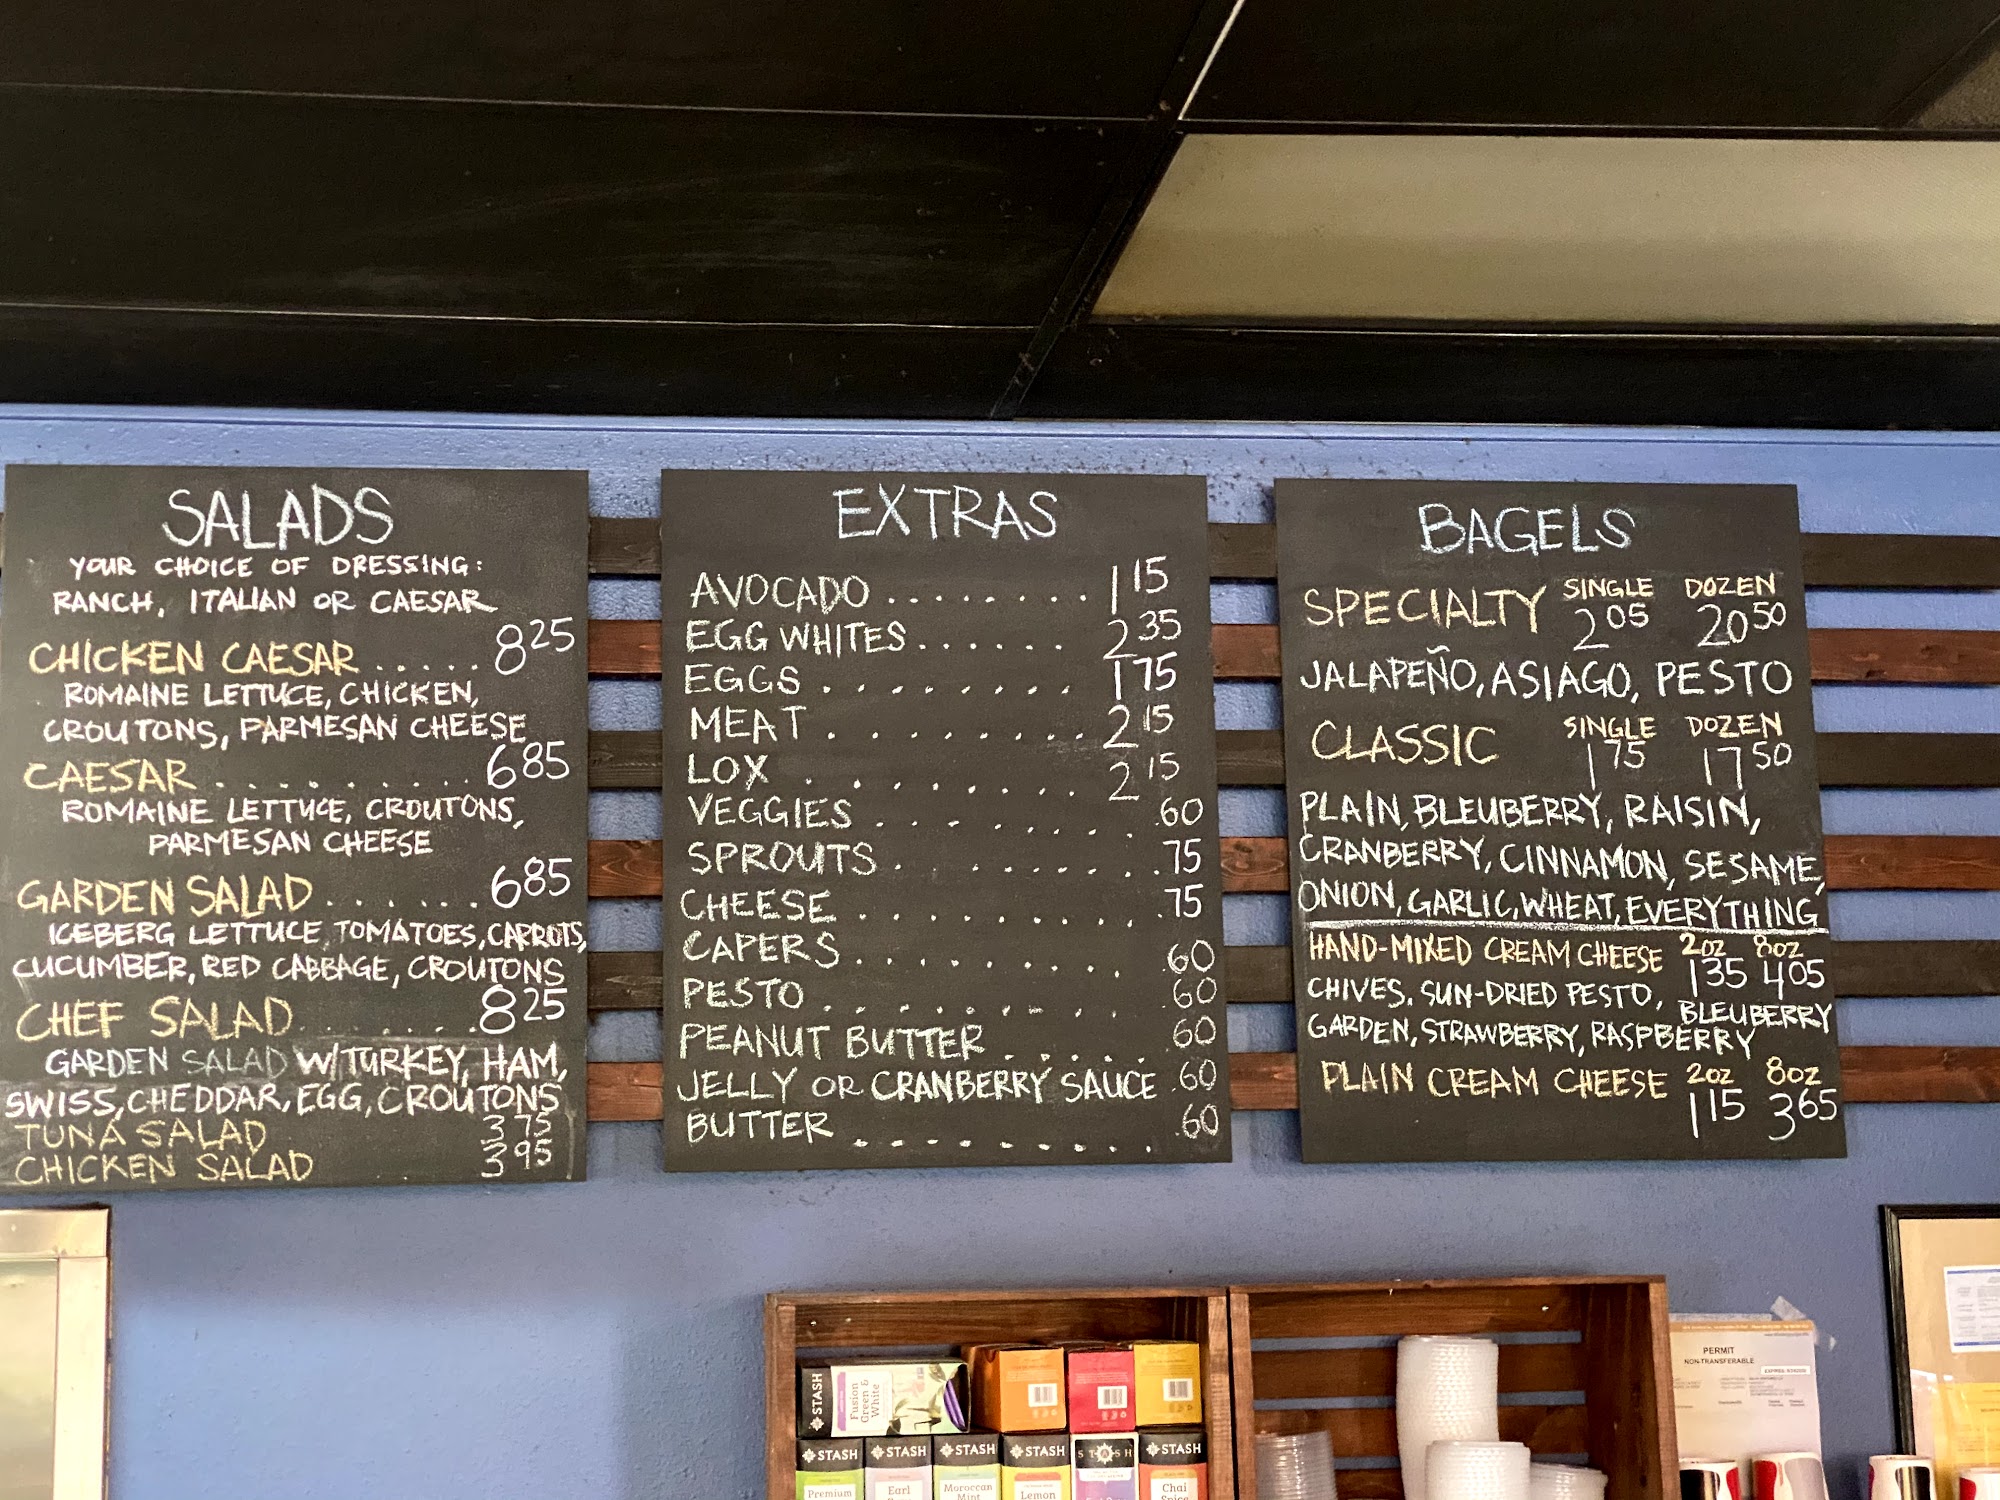 SALADS
YOUR CHOICE OF DRESSING:
RANCH, ITALIAN OR CAESAR
CHICKEN CAESAR ..... 8 25
ROMAINE LETTUCE, CHICKEN,
CROUTONS, PARMESAN CHEESE
CAESAR ......... 6 85
ROMAINE LETTUCE, CROUTONS,
PARMESAN CHEESE
GARDEN SALAD ...... 6 85
ICEBERG LETTUCE TOMATOES, CARROTS,
CUCUMBER, RED CABBAGE, CROUTONS
CHEF SALAD ....... 8 25
GARDEN SALAD W/TURKEY, HAM,
SWISS, CHEDDAR, EGG, CROUTONS
TUNA SALAD 3 75
CHICKEN SALAD 3 95
EXTRAS
AVOCADO ........ 1 15
EGG WHITES ...... 2 35
EGGS ........ 1 75
MEAT ......... 2 15
LOX ........ 2 15
VEGGIES ........ .60
SPROUTS ........ .75
CHEESE .......... .75
CAPERS .......... .60
PESTO ......... .60
PEANUT BUTTER ..... .60
JELLY OR CRANBERRY SAUCE .60
BUTTER ......... .60
BAGELS
SPECIALTY SINGLE 2 05 DOZEN 20 50
JALAPEÑO, ASIAGO, PESTO
CLASSIC SINGLE 1 75 DOZEN 17 50
PLAIN, BLEUBERRY, RAISIN,
CRANBERRY, CINNAMON, SESAME,
ONION, GARLIC, WHEAT, EVERYTHING
HAND-MIXED CREAM CHEESE 2oz 1 35 8oz 4 05
CHIVES, SUN-DRIED PESTO, BLEUBERRY
GARDEN, STRAWBERRY, RASPBERRY
PLAIN CREAM CHEESE 2oz 1 15 8oz 3 65
STASH
Fusion
Green &
White
STASH
Premium
STASH
Earl
STASH
Moroccan
Mint
STASH
Lemon
STASH
STASH
Chai
Spice
PERMIT
NON-TRANSFERABLE